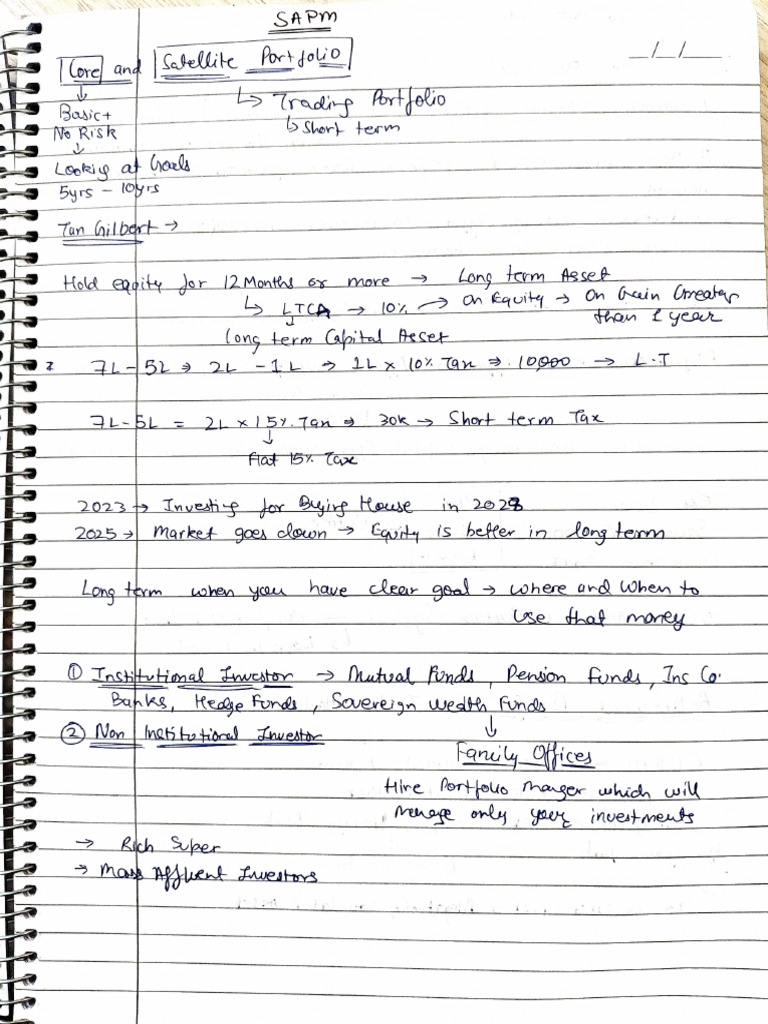 SAPM
Core and Satellite Portfolio
_/_/_
↓ ↳ Trading Portfolio
Basic + ↳ Short term
No Risk
↓
Looking at Goals
5yrs - 10yrs
Tan Gilbert →
Hold equity for 12 Months or more → Long term Asset
↳ LTCA → 10% → On Equity → On Gain Greater
than 1 year
↓
Long term Capital Asset
7L - 5L ⇒ 2L - 1L → 1L x 10% Tax ⇒ 10,000 → L.T
7L - 5L = 2L x 15% Tax ⇒ 30K → Short term Tax
↓
Flat 15% Tax
2023 → Investing for Buying House in 2028
2025 → Market goes down → Equity is better in long term
Long term when you have clear goal → where and when to
use that money
① Institutional Investor → Mutual Funds, Pension Funds, Ins Co.
Banks, Hedge Funds, Sovereign Wealth Funds
② Non Institutional Investor ↓
Family Offices
Hire Portfolio manger which will
manage only your investments
→ Rich Super
→ Mass Affluent Investors